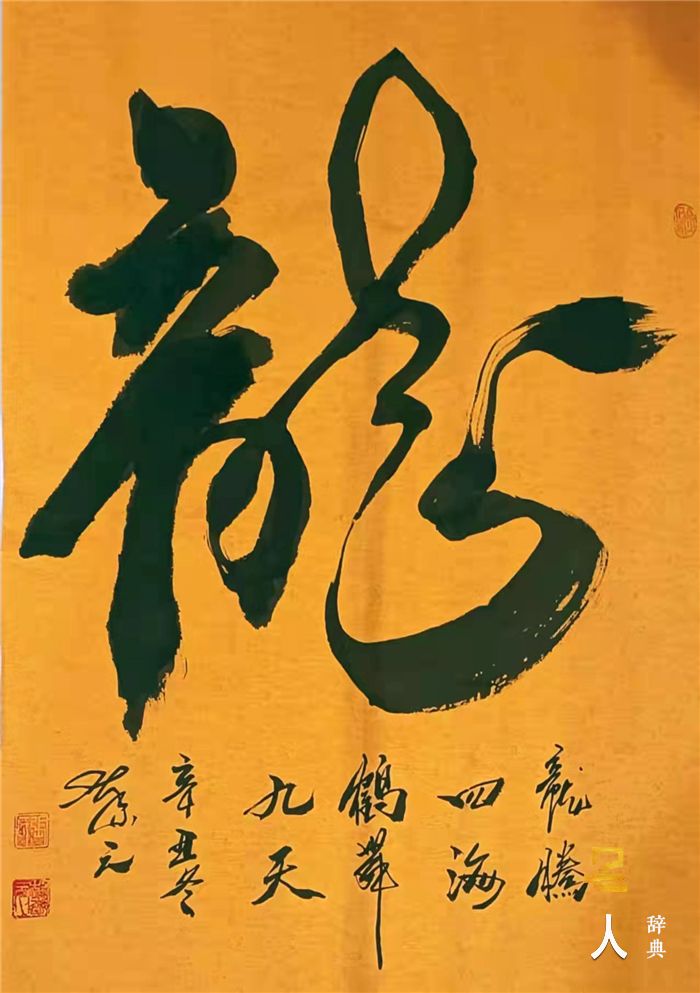 龍
龍騰
四海
鶴舞
九天
辛丑冬
人
辞典